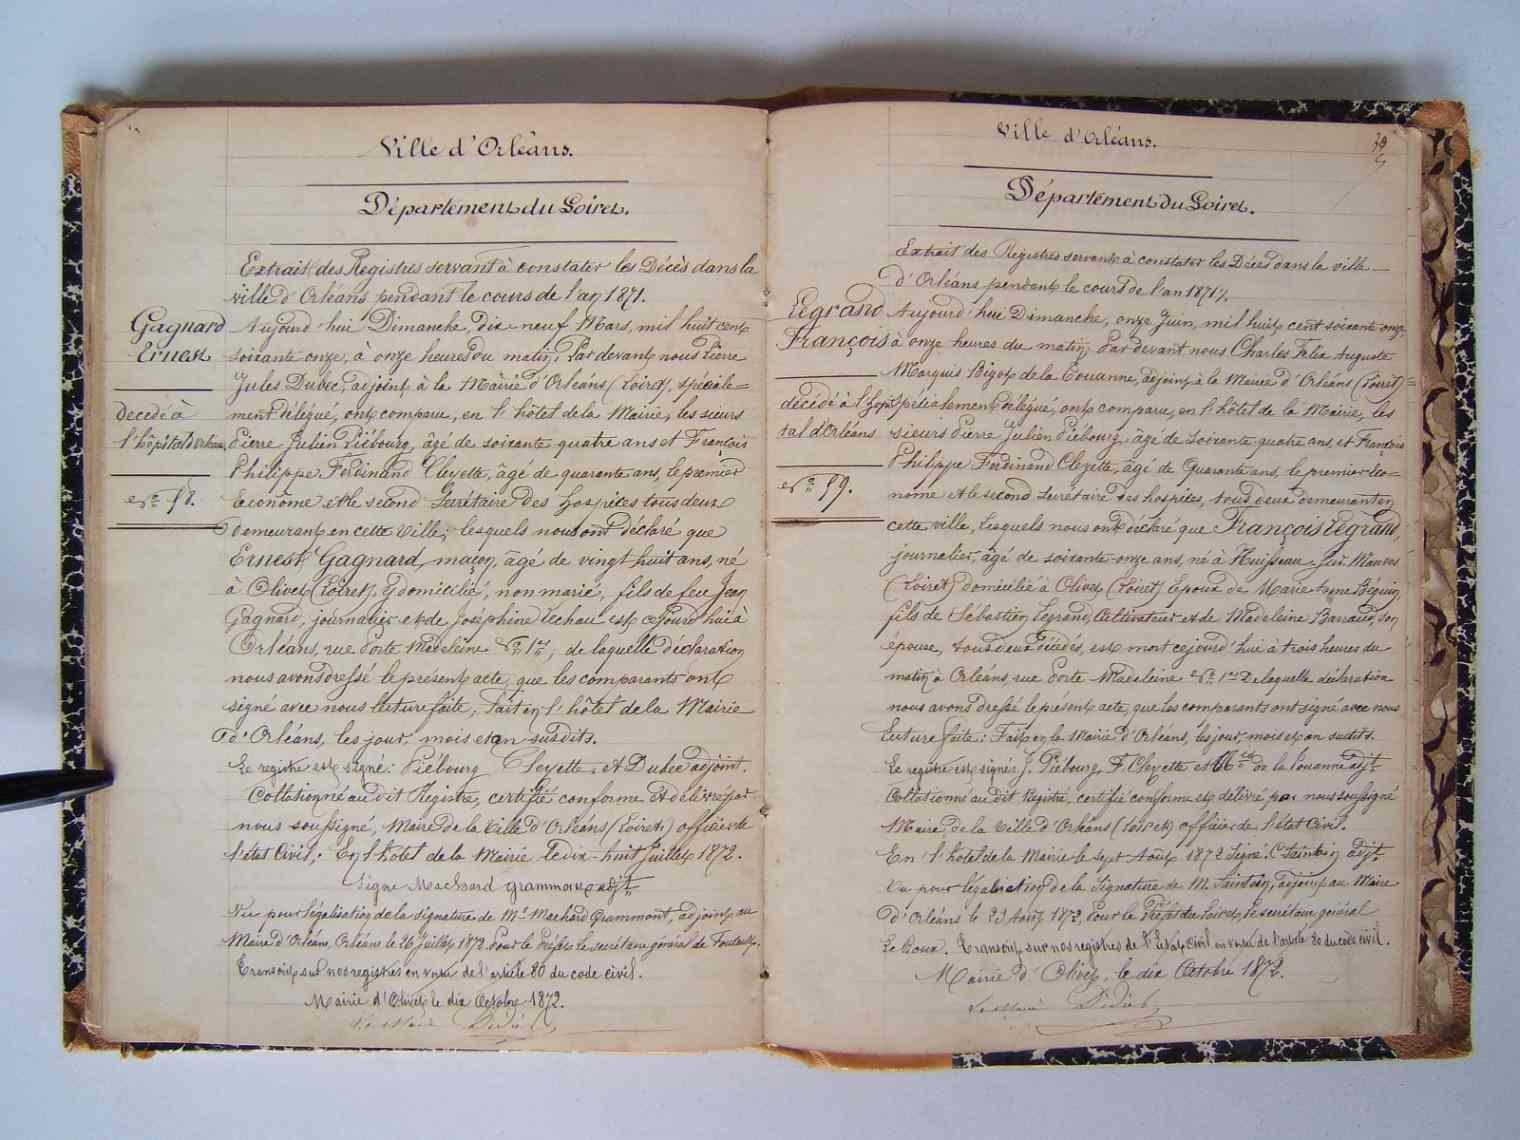 Ville d'Orléans.
Département du Loiret.
Extrait des Registres servant à constater les Décès dans la
ville d'Orléans pendant le cours de l'an 1871.
Gagnard
Ernest
Décédé à
l'hôpital d'Orléans
N° 58.
Aujourd'hui Dimanche, dix-neuf Mars, mil huit cent
soixante onze, à onze heures du matin; Par devant nous Pierre
Jules Dubec, adjoint à la Mairie d'Orléans (Loiret), spéciale=
ment délégué, ont comparu, en l'hôtel de la Mairie, les sieurs
Pierre Julien Piébourg, âgé de soixante quatre ans et François
Philippe Ferdinand Cleyette, âgé de quarante ans, le premier
Econôme et le second Secrétaire des hospices tous deux
demeurant en cette Ville; lesquels nous ont déclaré que
Ernest Gagnard, maçon, âgé de vingt huit ans, né
à Olivet (Loiret), y domicilié, non marié, fils de feu Jean
Gagnard, journalier et de Joséphine Lechau est ce jourd'hui à
Orléans, rue Porte Madeleine N° 1er; de laquelle déclaration
nous avons dressé le présent acte, que les comparants ont
signé avec nous lecture faite, Fait en l'hôtel de la Mairie
d'Orléans, les jour, mois et an susdits.
Le registre est signé: Piébourg Cleyette, et Dubec adjoint.
Collationné au dit Registre, certifié conforme et délivré par
nous soussigné, Maire de la Ville d'Orléans (Loiret) officier de
l'état Civil; En l'hôtel de la Mairie le dix-huit Juillet 1872.
Signé Machard Grammont adjt
Vu pour légalisation de la signature de Mr Machard Grammont, adjoint au
Maire d'Orléans, Orléans le 26 Juillet 1872. Pour le Préfet le secrétaire général de
Transcrit sur nos registres en vertu de l'article 80 du code civil.
Mairie d'Olivet le dix Octobre 1872.
Le Maire
Ville d'Orléans.
Département du Loiret.
Extrait des Registres servant à constater les Décès dans la ville
d'Orléans pendant le cours de l'an 1871.
Legrand
François
décédé à l'hopi
tal d'Orléans
N° 59.
Aujourd'hui Dimanche, onze Juin, mil huit cent soixante onze,
à onze heures du matin; Par devant nous Charles Felix Auguste
Marquis Bigot de la Touanne, adjoint à la Mairie d'Orléans (Loiret)=
spécialement délégué, ont comparu, en l'hôtel de la Mairie, les
sieurs Pierre Julien Piébourg, âgé de soixante quatre ans, et François
Philippe Ferdinand Cleyette, âgé de Quarante ans, le premier éco=
nome et le second secrétaire des hospices, tous deux demeurant en
cette ville, Lesquels nous ont déclaré que François Legrand,
journalier, âgé de soixante-onze ans, né à Huisseau-sur-Mauves
(Loiret) domicilié à Olivet (Loiret) Epoux de Marie Anne Béguin
fils de Sébastien Legrand, Cultivateur et de Madeleine Barraud, son
épouse, tous deux décédés, est mort ce jourd'hui à trois heures du
matin à Orléans, rue Porte-Madeleine N° 1er De laquelle déclaration
nous avons dressé le présent acte, que les comparants ont signé avec nous
lecture faite: Fait en la Mairie d'Orléans, les jour, mois et an susdits.
Le registre est signé: J. Piébourg, F. Cleyette et de la Touanne adjt
Collationné au dit Registre, certifié conforme et délivré, par nous soussigné
Maire de la Ville d'Orléans (Loiret) officier de l'état Civil.
En l'hôtel de la Mairie le sept Août 1872 Signé: adjt
Vu pour légalisation de la signature de M. adjoint au Maire
d'Orléans le Août 1872, Pour le Préfet du Loiret, le secrétaire général
Transcrit sur nos registres de l'Etat Civil en vertu de l'article 80 du code civil.
Mairie d'Olivet, le dix Octobre 1872.
Le Maire